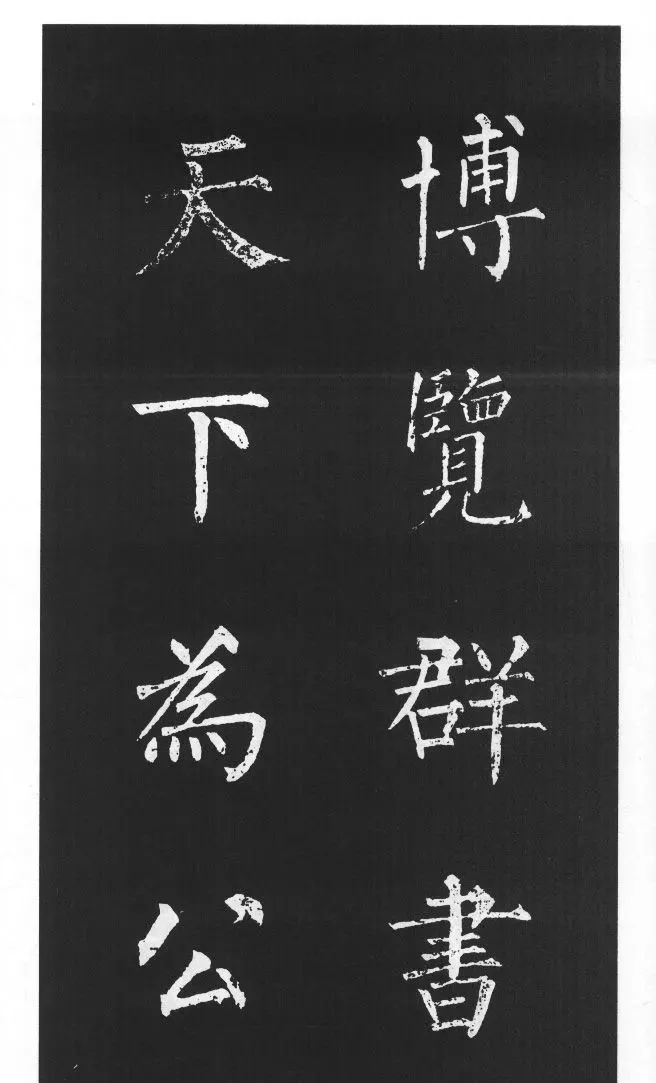 博覽群書
天下為公